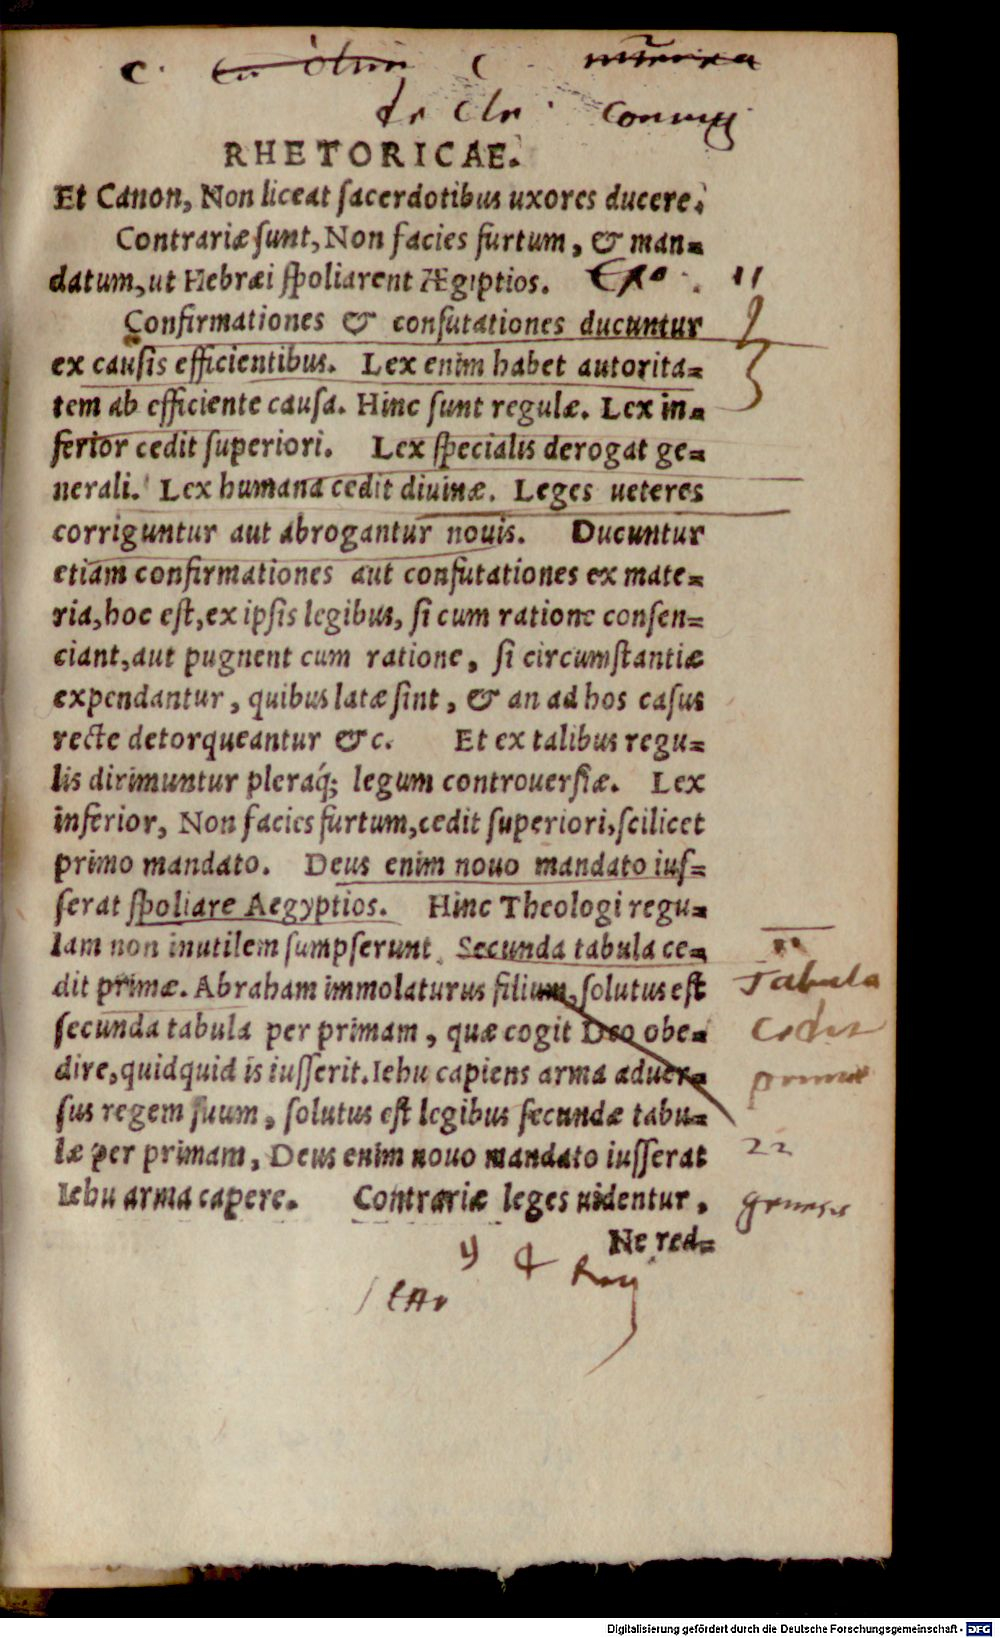 de cler. coniug.
RHETORICAE.
Et Canon, Non liceat ſacerdotibus uxores ducere.
Contrariæ ſunt, Non facies furtum, & man=
datum, ut Hebræi ſpoliarent Ægiptios. Exo. 11
Confirmationes & confutationes ducuntur
ex cauſis efficientibus. Lex enim habet autorita=
tem ab efficiente cauſa. Hinc ſunt regulæ. Lex in=
ferior cedit ſuperiori. Lex ſpecialis derogat ge=
nerali. Lex humana cedit diuinæ. Leges ueteres
corriguntur aut abrogantur nouis. Ducuntur
etiam confirmationes aut confutationes ex mate=
ria, hoc eſt, ex ipſis legibus, ſi cum ratione conſen=
ciant, aut pugnent cum ratione, ſi circumſtantiæ
expendantur, quibus latæ ſint, & an ad hos caſus
recte detorqueantur &c. Et ex talibus regu=
lis dirimuntur pleraq́; legum controuerſiæ. Lex
inferior, Non facies furtum, cedit ſuperiori, ſcilicet
primo mandato. Deus enim nouo mandato iuſ=
ſerat ſpoliare Aegyptios. Hinc Theologi regu=
lam non inutilem ſumpſerunt. Secunda tabula ce=
dit primæ. Abraham immolaturus filium, ſolutus eſt
ſecunda tabula per primam, quæ cogit Deo obe=
dire, quidquid is iuſſerit. Iehu capiens arma aduer=
ſus regem ſuum, ſolutus eſt legibus ſecundæ tabu=
læ per primam, Deus enim nouo mandato iuſſerat
Iehu arma capere. Contrariæ leges uidentur,
Ne red=
Tabula
cedit
primae
22
genesis
Digitalisierung gefördert durch die Deutsche Forschungsgemeinschaft - DFG